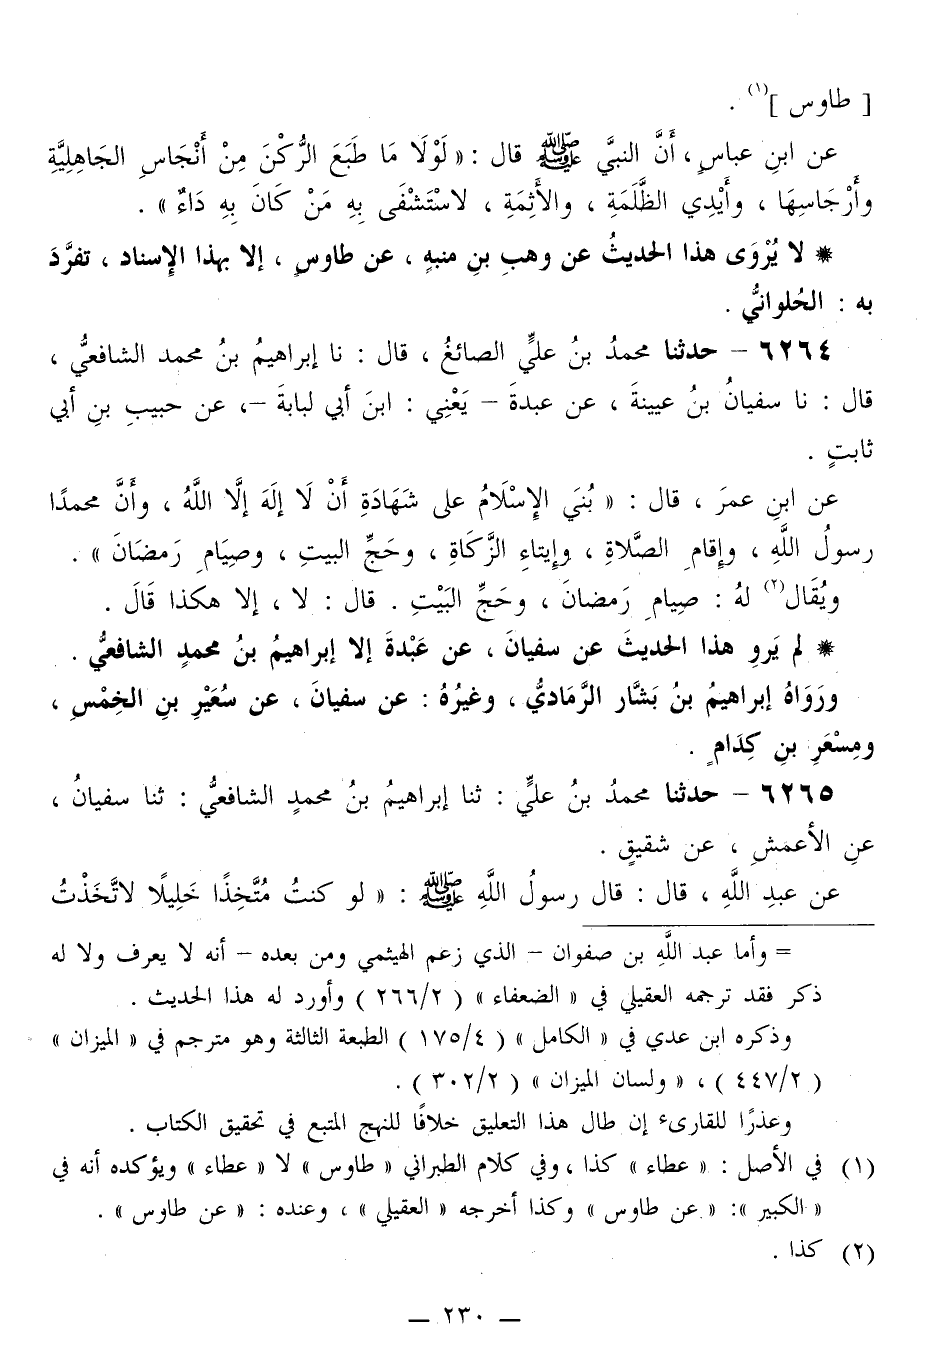 [ طاوس ](١) .
عن ابنِ عباسٍ ، أَنَّ النبيَّ ﷺ قال : « لَوْلَا مَا طَبَعَ الرُّكْنَ مِنْ أَنْجَاسِ الجَاهِلِيَّةِ
وأَرْجَاسِهَا ، وأَيْدِي الظَّلَمَةِ ، والأَثِمَةِ ، لاسْتَشْفَى بِهِ مَنْ كَانَ بِهِ دَاءٌ » .
* لا يُرْوَى هذا الحديثُ عن وهبِ بنِ منبهٍ ، عن طاوسٍ ، إلا بهذا الإسناد ، تفرَّدَ
به : الحُلوانيُّ .
٦٢٦٤ – حدثنا محمدُ بنُ عليٍّ الصائغُ ، قال : نا إبراهيمُ بنُ محمد الشافعيُّ ،
قال : نا سفيانُ بنُ عيينةَ ، عن عبدةَ – يَعْنِي : ابنَ أبي لبابةَ –، عن حبيبِ بنِ أبي
ثابتٍ .
عن ابنِ عمرَ ، قال : « بُنيَ الإسْلَامُ على شَهَادَةِ أَنْ لَا إِلَهَ إِلَّا اللَّهُ ، وأَنَّ محمدًا
رسولُ اللَّهِ ، وإقامِ الصَّلاةِ ، وإيتاءِ الزَّكَاةِ ، وحَجِّ البيتِ ، وصيَامِ رَمضَانَ » .
ويُقَال(٢) لهُ : صِيامِ رَمضانَ ، وحَجِّ البَيْتِ . قال : لا ، إلا هكذا قَالَ .
* لم يَروِ هذا الحديثَ عن سفيانَ ، عن عَبْدةَ إلا إبراهيمُ بنُ محمدٍ الشافعيُّ .
ورَوَاهُ إبراهيمُ بنُ بَشَّار الرَّمَاديُّ ، وغيرُهُ : عن سفيانَ ، عن سُعَيْرِ بنِ الخِمْسِ ،
ومِسْعَرِ بنِ كِدَامٍ .
٦٢٦٥ – حدثنا محمدُ بنُ عليٍّ : ثنا إبراهيمُ بنُ محمدٍ الشافعيُّ : ثنا سفيانُ ،
عنِ الأعمشِ ، عن شقيقٍ .
عن عبدِ اللَّهِ ، قال : قال رسولُ اللَّهِ ﷺ : « لو كنتُ مُتَّخِذًا خَلِيلًا لاتَّخَذْتُ
= وأما عبد اللَّهِ بن صفوان – الذي زعم الهيثمي ومن بعده – أنه لا يعرف ولا له
ذكر فقد ترجمه العقيلي في « الضعفاء » ( ٢٦٦/٢ ) وأورد له هذا الحديث .
وذكره ابن عدي في « الكامل » ( ١٧٥/٤ ) الطبعة الثالثة وهو مترجم في « الميزان »
( ٤٤٧/٢ ) ، « ولسان الميزان » ( ٣٠٢/٢ ) .
وعذرًا للقارىء إن طال هذا التعليق خلافًا للنهج المتبع في تحقيق الكتاب .
(١) في الأصل : « عطاء » كذا ، وفي كلام الطبراني « طاوس » لا « عطاء » ويؤكده أنه في
« الكبير »: « عن طاوس » وكذا أخرجه « العقيلي » ، وعنده : « عن طاوس » .
(٢) كذا .
– ٢٣٠ –